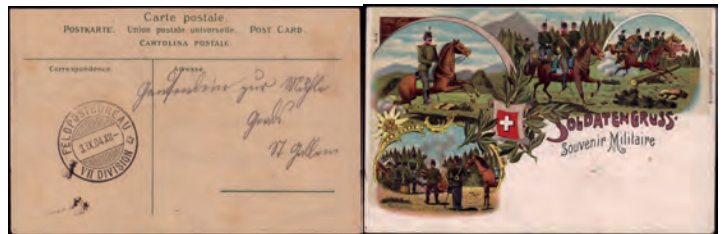 Carte postale.
POSTKARTE. Union postale universelle. POST CARD.
CARTOLINA POSTALE.
Correspondence. Adresse.
zur
St Gallen
FELDPOSTBUREAU
3.IX.04.XII.-
VII DIVISION
SOLDATENGRUSS.
Souvenir Militaire